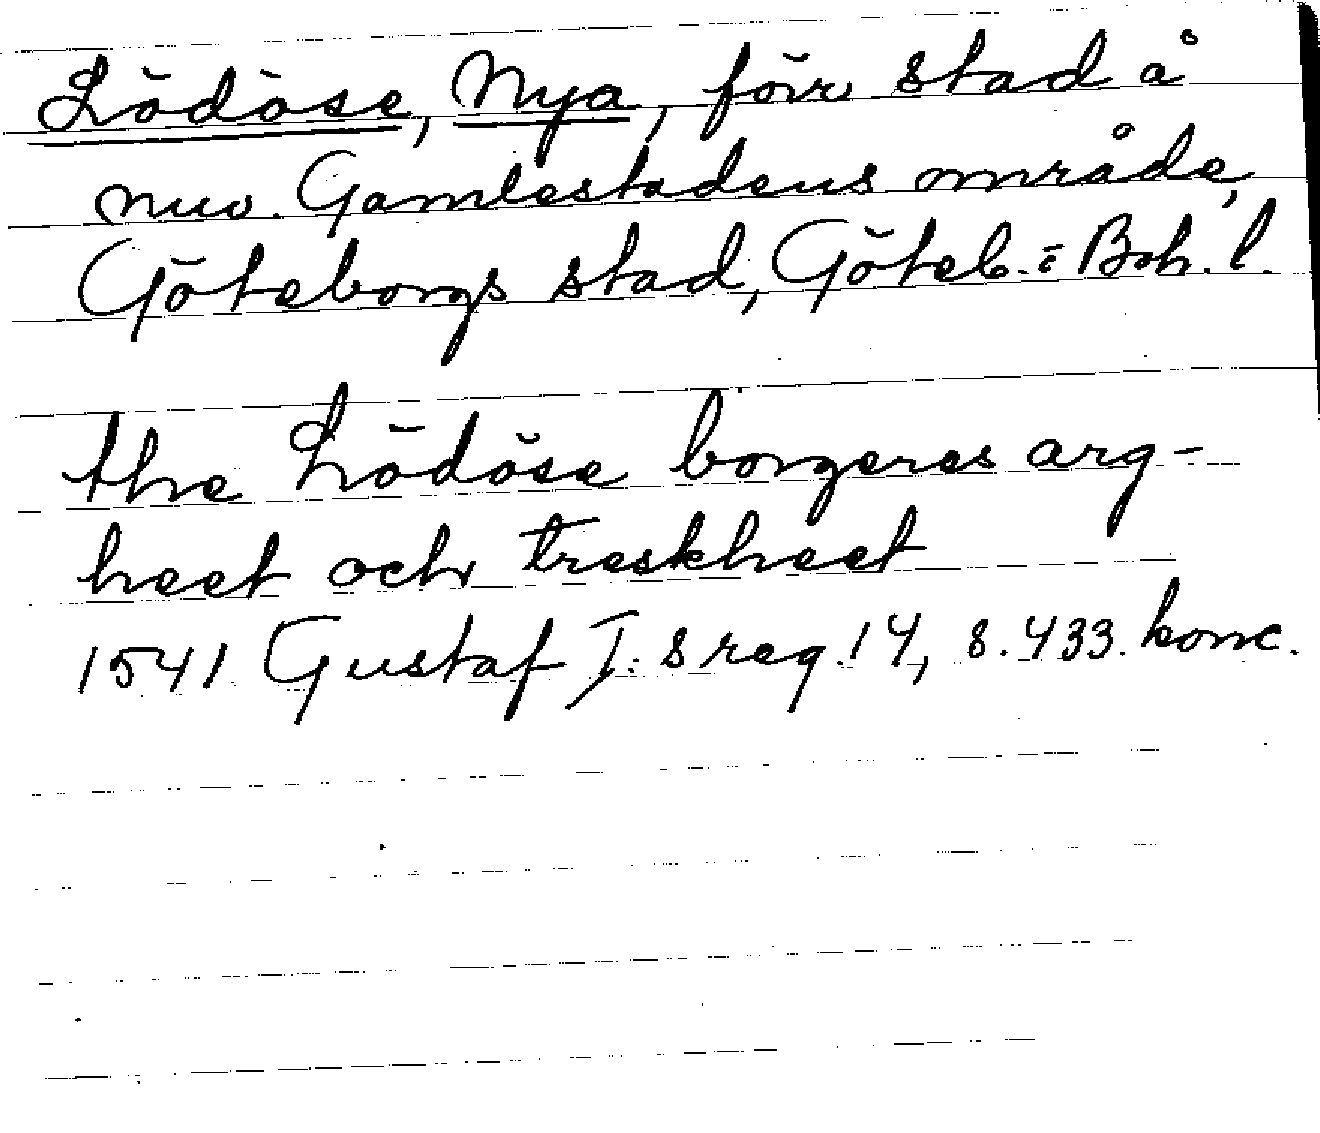 Lödöse, Nya, förr stad å
nuv. Gamlestadens område,
Göteborgs stad, Göteb. = Boh. l.
the Lödöse borgeres arg-
heet och treskheet
1541 Gustaf I:s reg. 14, s. 433. konc.